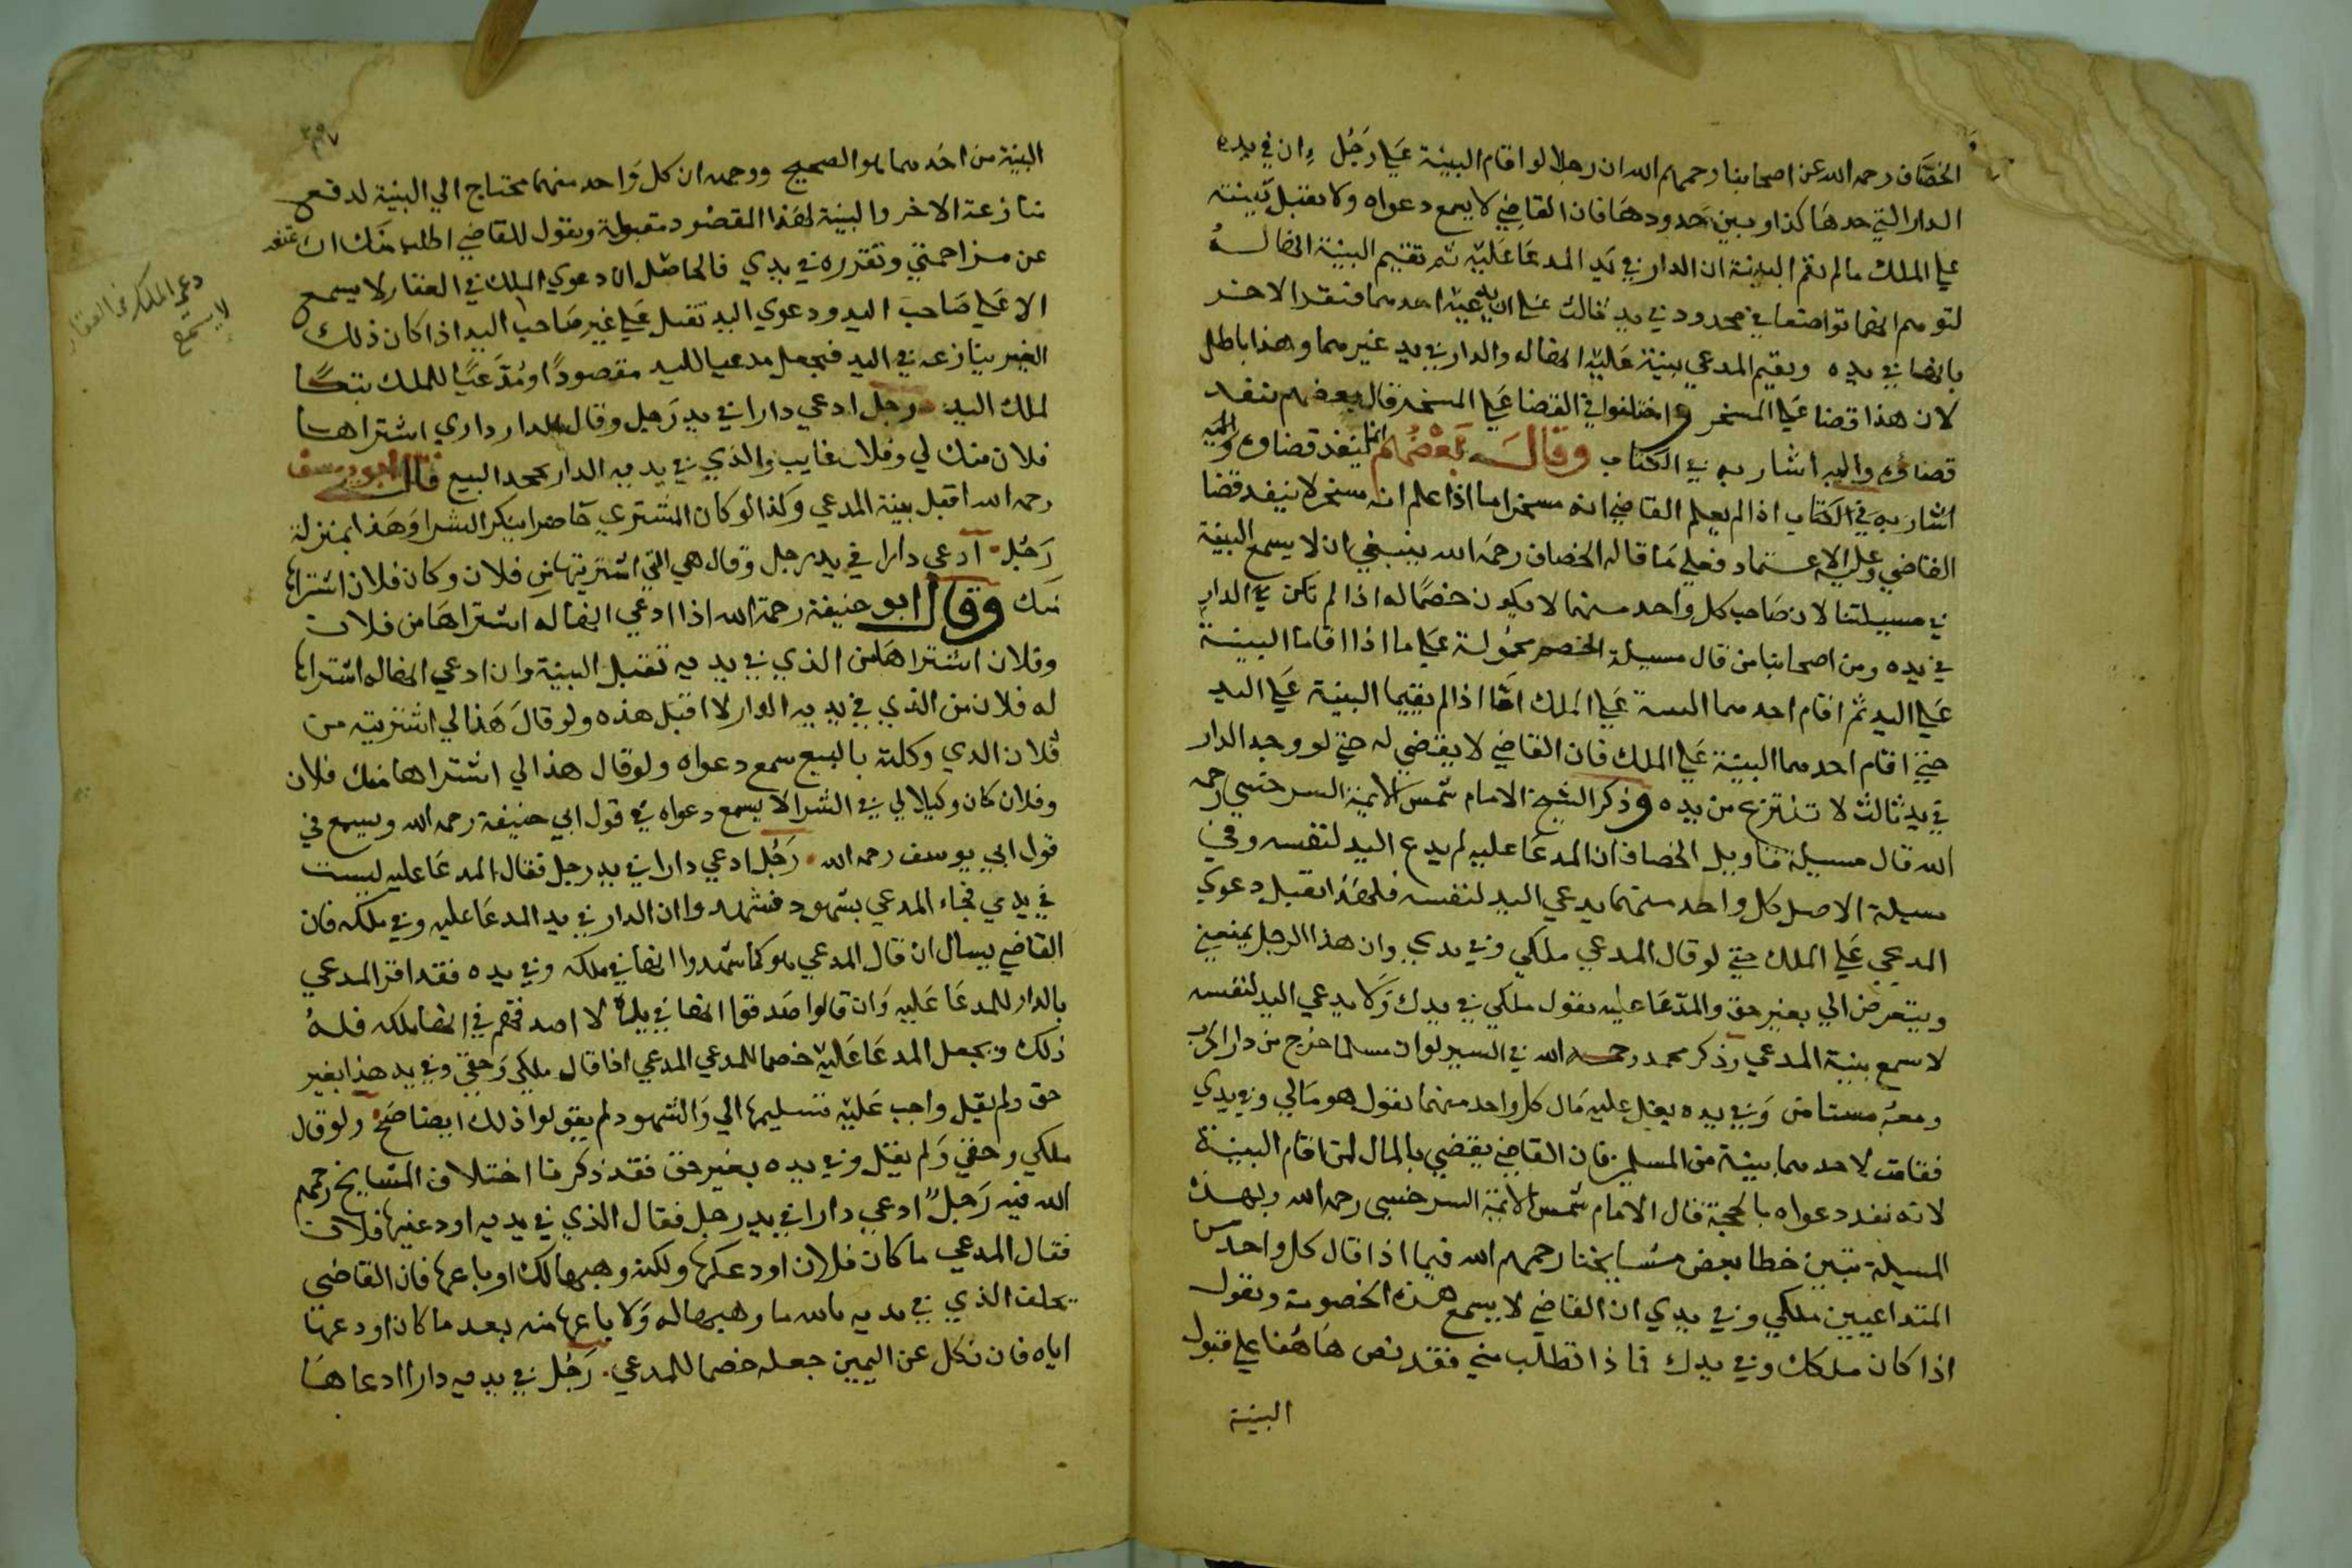 الخصاف رحمه الله عن اصحابنا رحمهم الله ان رجلا لو اقام البينة علي رجل ان في يده
الدار التي حدها كذا وبين حدودها فان القاضي لا يسمع دعواه ولا يقبل بينته
علي الملك ما لم يقم البينة ان الدار في يد المدعا عليه ثم تقيم البينة انها له
لتوهم انهما تواضعا في محدود في يد ثالث علي ان يدعيه احدهما فيقر الاخر
بانها في يده ويقيم المدعي بينة عليه انها له والدار في يد غيرهما وهذا باطل
لان هذا قضا علي المسخر واختلفوا في القضا علي المسخر قال بعضهم ينفد
قضاؤه واليه اشار به في الكتاب وقال بعضهم انما ينفذ قضاوه واليه
اشار به في الكتاب اذا لم يعلم القاضي انه مسخر اما اذا علم انه مسخر لا ينفد قضا
القاضي وعليه الاعتماد فعلي ما قاله الخصاف رحمه الله ينبغي ان لا يسمع البينة
في مسيلتنا لان صاحب كل واحد منهما لا يكون خصما له اذا لم تكن في الدار
في يده ومن اصحابنا من قال مسيلة الخصم محمولة علي ما اذا اقاما البينة
علي اليد ثم اقام احدهما البينة علي الملك اما اذا لم يقيما البينة علي اليد
حتي اقام احدهما البينة علي الملك فان القاضي لا يقضي له حتي لو وجد الدار
في يد ثالث لا تنتزع من يده وذكر الشيخ الامام شمس الايمة السرخسي رحمه
الله قال مسيلة تاويل الخصاف ان المدعا عليه لم يدع اليد لنفسه وفي
مسيلة الاصل كل واحد منهما يدعي اليد لنفسه فلهذا تقبل دعوي
المدعي علي الملك حتي لو قال المدعي ملكي وفي يدي وان هذا الرجل يمنعني
ويتعرض الي بغير حق والمدعا عليه يقول ملكي في يدك ولا يدعي اليد لنفسه
لا سمع بينة المدعي وذكر محمد رحمه الله في السير لو ان مسلما خرج من دار الحرب
ومعه مستامن وفي يده بغل عليه مال كل واحد منهما يقول هو مالي وفي يدي
فقامت لاحدهما بينة من المسلمين فان القاضي يقضي بالمال لمن اقام البينة
لانه نفد دعواه بالحجة قال الامام شمس الايمة السرخسي رحمه الله وبهذه
المسيلة تبين خطا بعض مشايخنا رحمهم الله فيما اذا قال كل واحد من
المتداعيين ملكي وفي يدي ان القاضي لا يسمع هذه الخصومة ويقول
اذا كان ملكك وفي يدك فماذا تطلب مني فقد نص هاهنا علي قبول
البينة
البينة من احدهما هو الصحيح ووجهه ان كل واحد منهما يحتاج الي البينة لدفع
منازعة الاخر والبينة لهذا المقصود مقبولة ويقول للقاضي اطلب منك ان تمنعه
عن مزاحمتي وتقرره في يدي فالحاصل ان دعوي الملك في العقار لا يسمع
الا علي صاحب اليد ودعوي اليد تقبل علي غير صاحب اليد اذا كان ذلك
الغير ينازعه في اليد فيجعل مدعيا لليد مقصودا ومدعيا للملك تبعا
لملك اليد رجل ادعي دارا في يد رجل وقال الدار داري اشتراها
فلان منك لي وفلان غايب والذي في يديه الدار يجحد البيع قال ابو يوسف
رحمه الله اقبل بينة المدعي وكذا لو كان المشتري حاضرا ينكر الشرا وهذا بمنزلة
رجل ادعي دارا في يد رجل وقال هي التي اشتريتها من فلان وكان فلان اشتراها
منك وقال ابو حنيفة رحمة الله اذا ادعي انها له اشتراها من فلان
وفلان اشتراها من الذي في يديه تقبل البينة وان ادعي انها له اشتراها
له فلان من الذي في يديه الدار لا اقبل هذه ولو قال هذا لي اشتريته من
فلان الدي وكلته بالبيع سمع دعواه ولو قال هذا لي اشتراها منك فلان
وفلان كان وكيلا لي في الشرا لا يسمع دعواه في قول ابي حنيفة رحمه الله ويسمع في
قول ابي يوسف رحمه الله رجل ادعي دارا في يد رجل فقال المدعا عليه ليست
في يدي فجاء المدعي بشهود فشهدوا ان الدار في يد المدعا عليه وفي ملكه فان
القاضي يسال ان قال المدعي هو كما شهدوا انها في ملكه وفي يده فقد اقر المدعي
بالدار للمدعا عليه وان قالوا صدقوا انها في يده لا اصدقهم في انها ملكه فله
ذلك ويجعل المدعا عليه خصما للمدعي المدعي اذا قال ملكي وحقي وفي يد هذا بغير
حق ولم يقل واجب عليه تسليمها الي والشهود لم يقولوا ذلك ايضا صح ولو قال
ملكي وحقي ولم يقل وفي يده بغير حق فقد ذكرنا اختلاف المشايخ رحمهم
الله فيه رجل ادعي دارا في يد رجل فقال الذي في يديه اودعنيها فلان
فقال المدعي ما كان فلان اودعكها ولكنه وهبها لك او باعها فان القاضي
يحلف الذي في يديه بالله ما وهبها له ولا باعها منه بعد ما كان اودعها
اياه فان نكل عن اليمين جعله خصما للمدعي رجل في يديه دارا ادعاها
دعوي الملك في العقار
لا يسمع